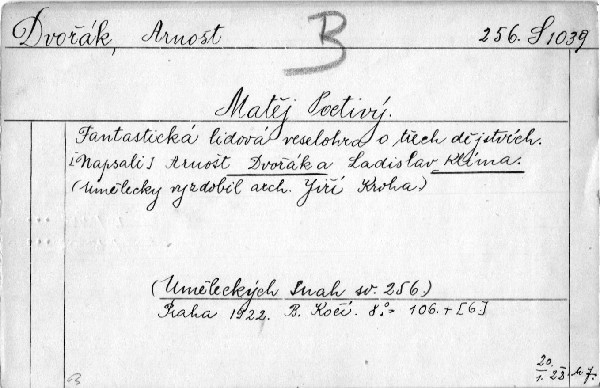 Dvořák, Arnošt
B
256. S 1039
Matěj Poctivý.
Fantastická lidová veselohra o třech dějstvích.
[Napsali] Arnošt Dvořák a Ladislav Klíma.
(Umělecky vyzdobil arch. Jiří Kroha.)
(Uměleckých Snah sv. 256.)
Praha 1922. B. Kočí. 8.° - 106. + [6.]
B
20.
1. 23.